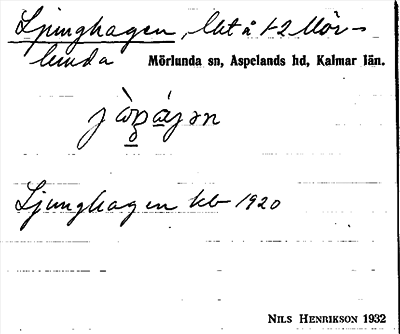 Ljunghagen, lht å 1-2 Mör-
lunda Mörlunda sn, Aspelands hd, Kalmar län.
Ljunghagen kb 1920
NILS HENRIKSON 1932